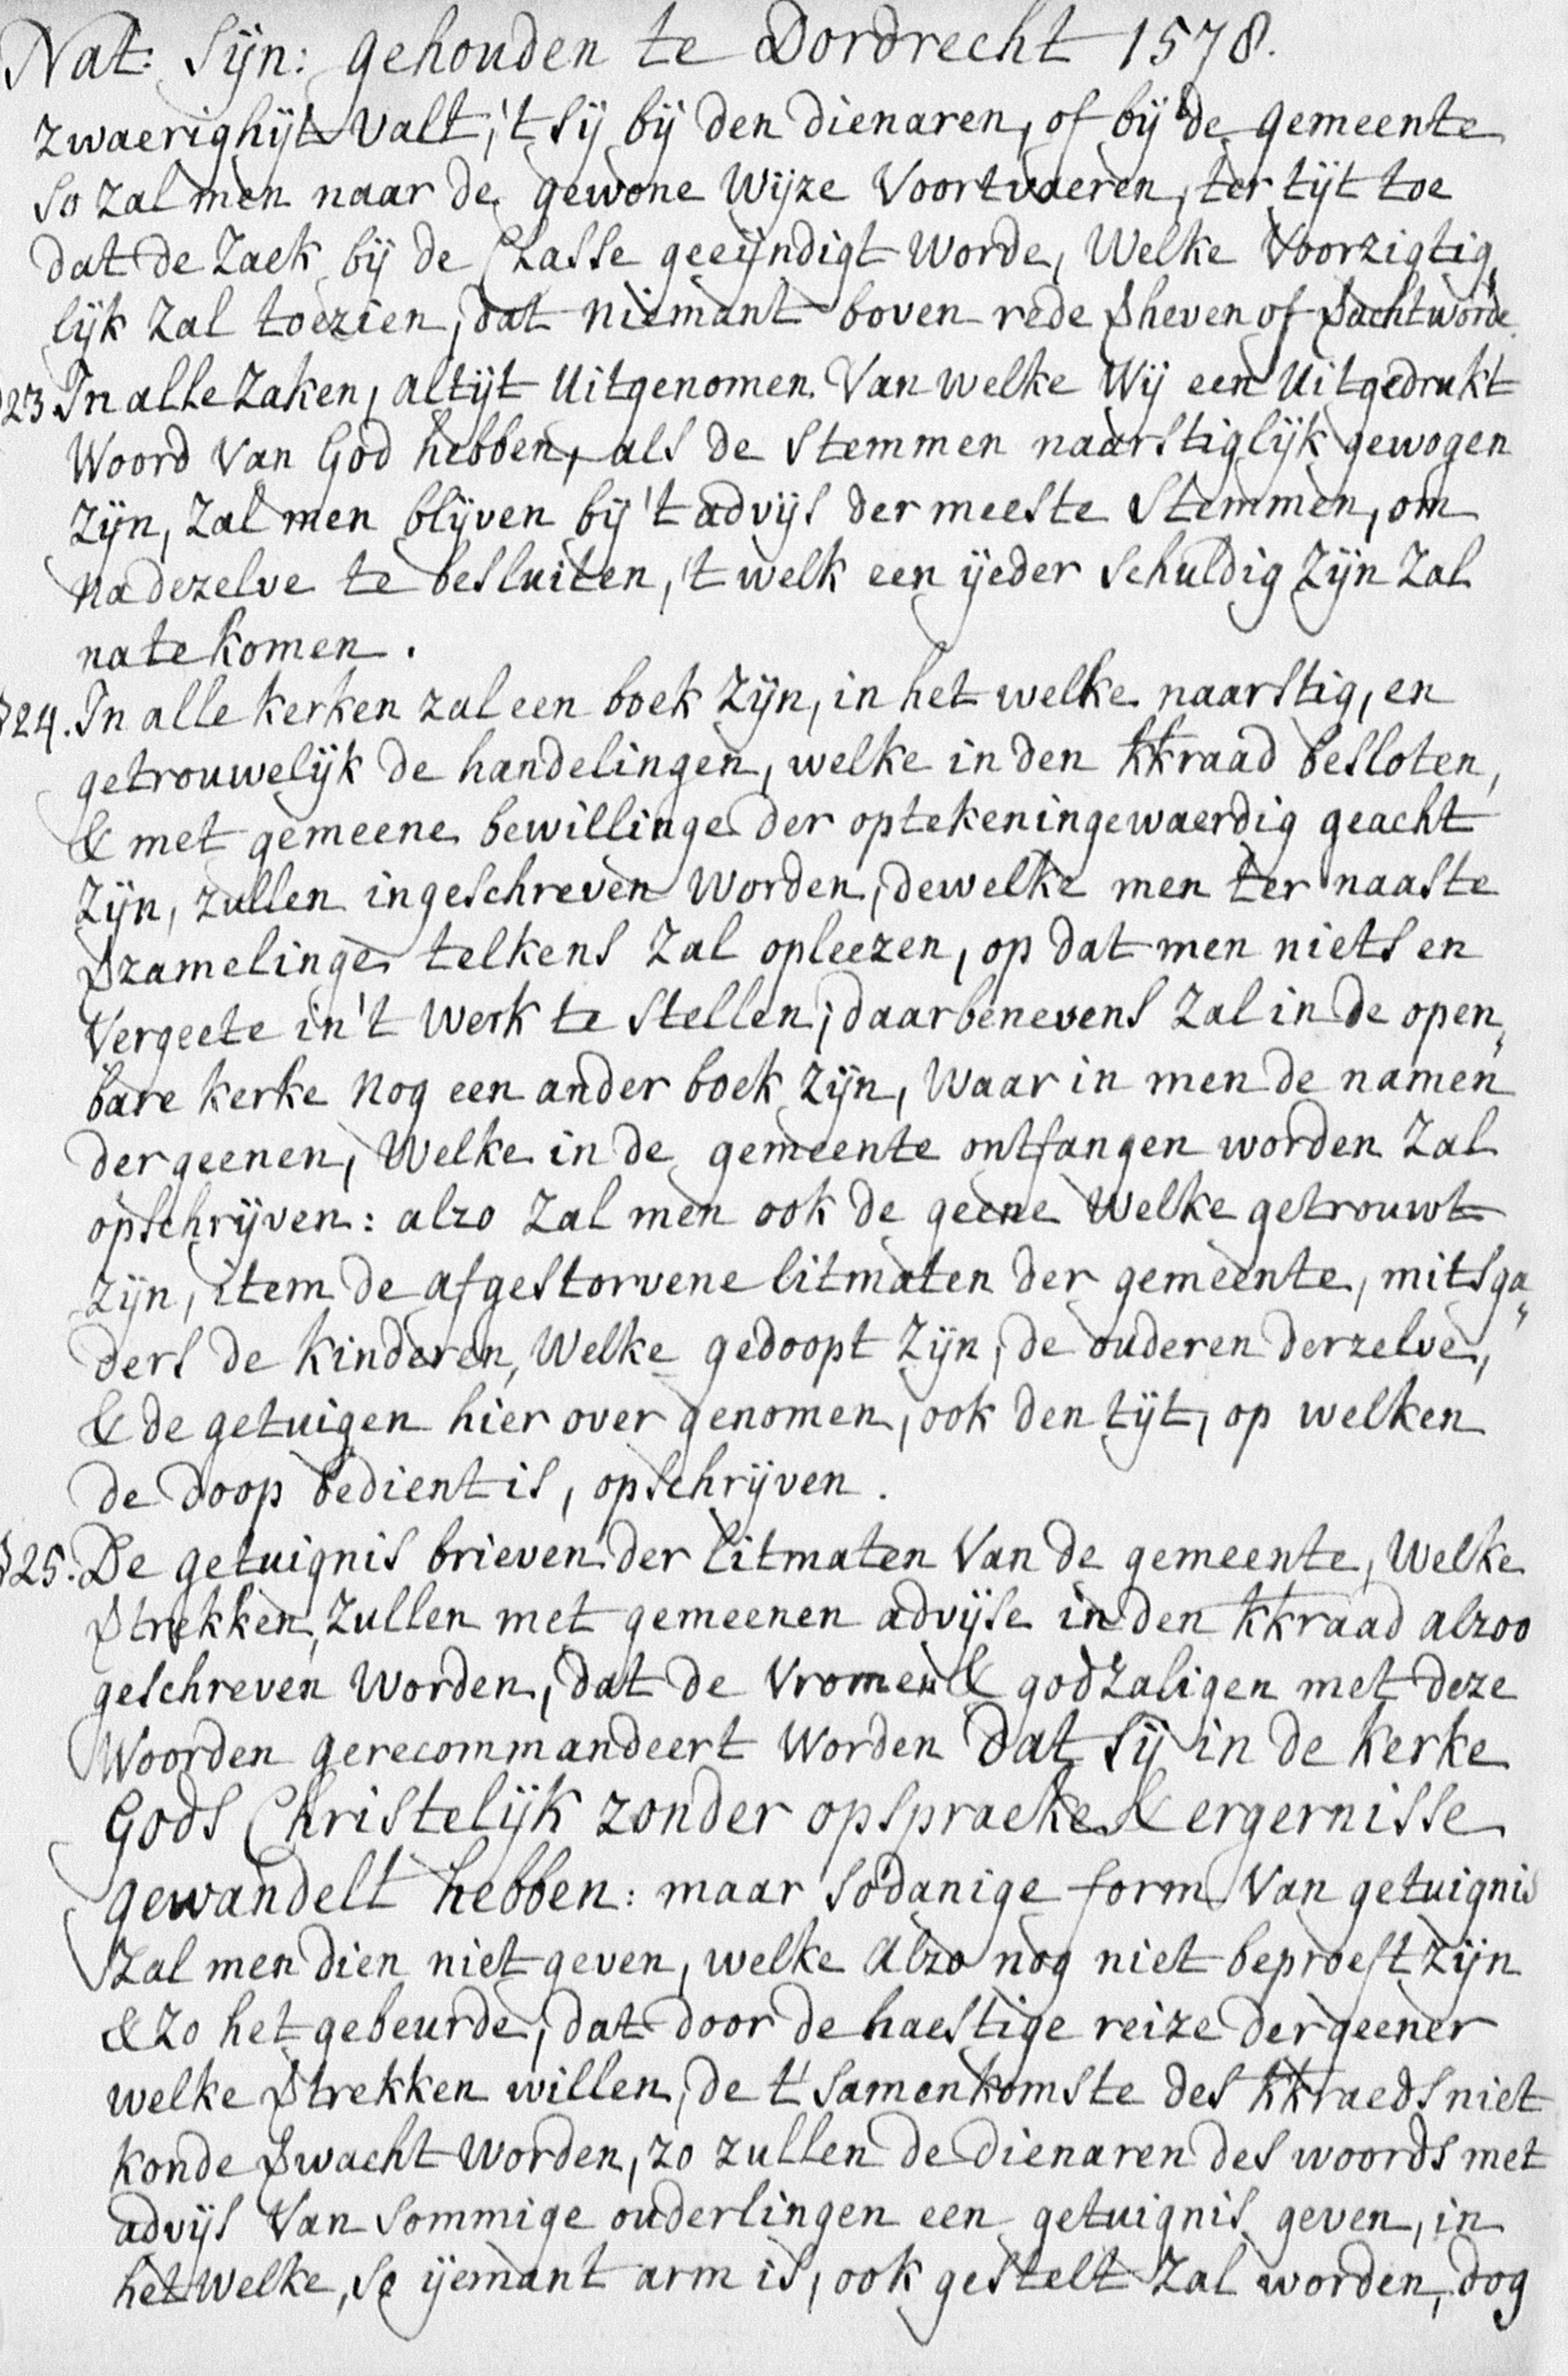 Nat: Sijn: gehouden te Dordrecht 1578.
zwaerighijt valt, 't sij bij den dienaren, of bij de gemeente
so zal men naar de gewone Wijze Voortvaeren, ter tijt toe
dat de Zaek bij de Classe geeijndigt worde, Welke Voorzigtig„
lijk zal toezien, dat niemant boven rede ꝟheven of ꝟachtworde
§23 In alle Zaken, altijt Uitgenomen Van welke Wij een Uitgedrukt
Woord Van God hebben, als de Stemmen naarstiglijk gewogen
zijn, zal men blijven bij 't advijs der meeste Stemmen, om
na dezelve te besluiten, 't welk een ijeder schuldig zijn zal
na te komen.
§24. In alle kerken zal een boek zijn, in het welke naarstig, en
getrouwelijk de handelingen, welke in den kkraad besloten,
& met gemeene bewillinge der optekeninge waerdig geacht
zijn, zullen ingeschreven worden, dewelke men ter naaste
ꝟzamelinge telkens zal opleezen, op dat men niets en
Vergeete in 't werk te stellen; daarbenevens zal in de open„
bare kerke nog een ander boek zijn, Waar in men de namen
der geenen, Welke in de gemeente ontfangen worden zal
opschrijven: alzo zal men ook de geene Welke getrouwt
zijn, item de afgestorvene litmaten der gemeente, mitsga„
ders de kinderen, Welke gedoopt zijn, de ouderen derzelve,
& de getuigen hier over genomen, ook den tijt, op welken
de doop bedient is, opschrijven.
§25. De getuignis brieven der litmaten Van de gemeente, Welke
ꝟtrekken, zullen met gemeenen advijse in den kkraad alzoo
geschreven worden, dat de Vromen & godzaligen met deze
Woorden gerecommandeert worden dat sij in de kerke
Gods Christelijk zonder opspraeke & ergernisse
gewandelt hebben: maar sodanige form Van getuignis
zal men dien niet geven, welke alzo nog niet beproeft zijn
& zo het gebeurde, dat door de haestige reize der geener
welke ꝟtrekken willen, de t'samenkomste des kkraeds niet
konde ꝟwacht worden, zo zullen de dienaren des woords met
advijs Van sommige ouderlingen een getuignis geven, in
het welke, so ijemant arm is, ook gestelt zal worden, dog